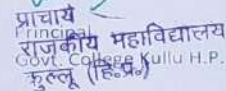 प्राचार्य
Principal
राजकीय महाविद्यालय
Govt. College Kullu H.P.
कुल्लू (हि.प्र.)